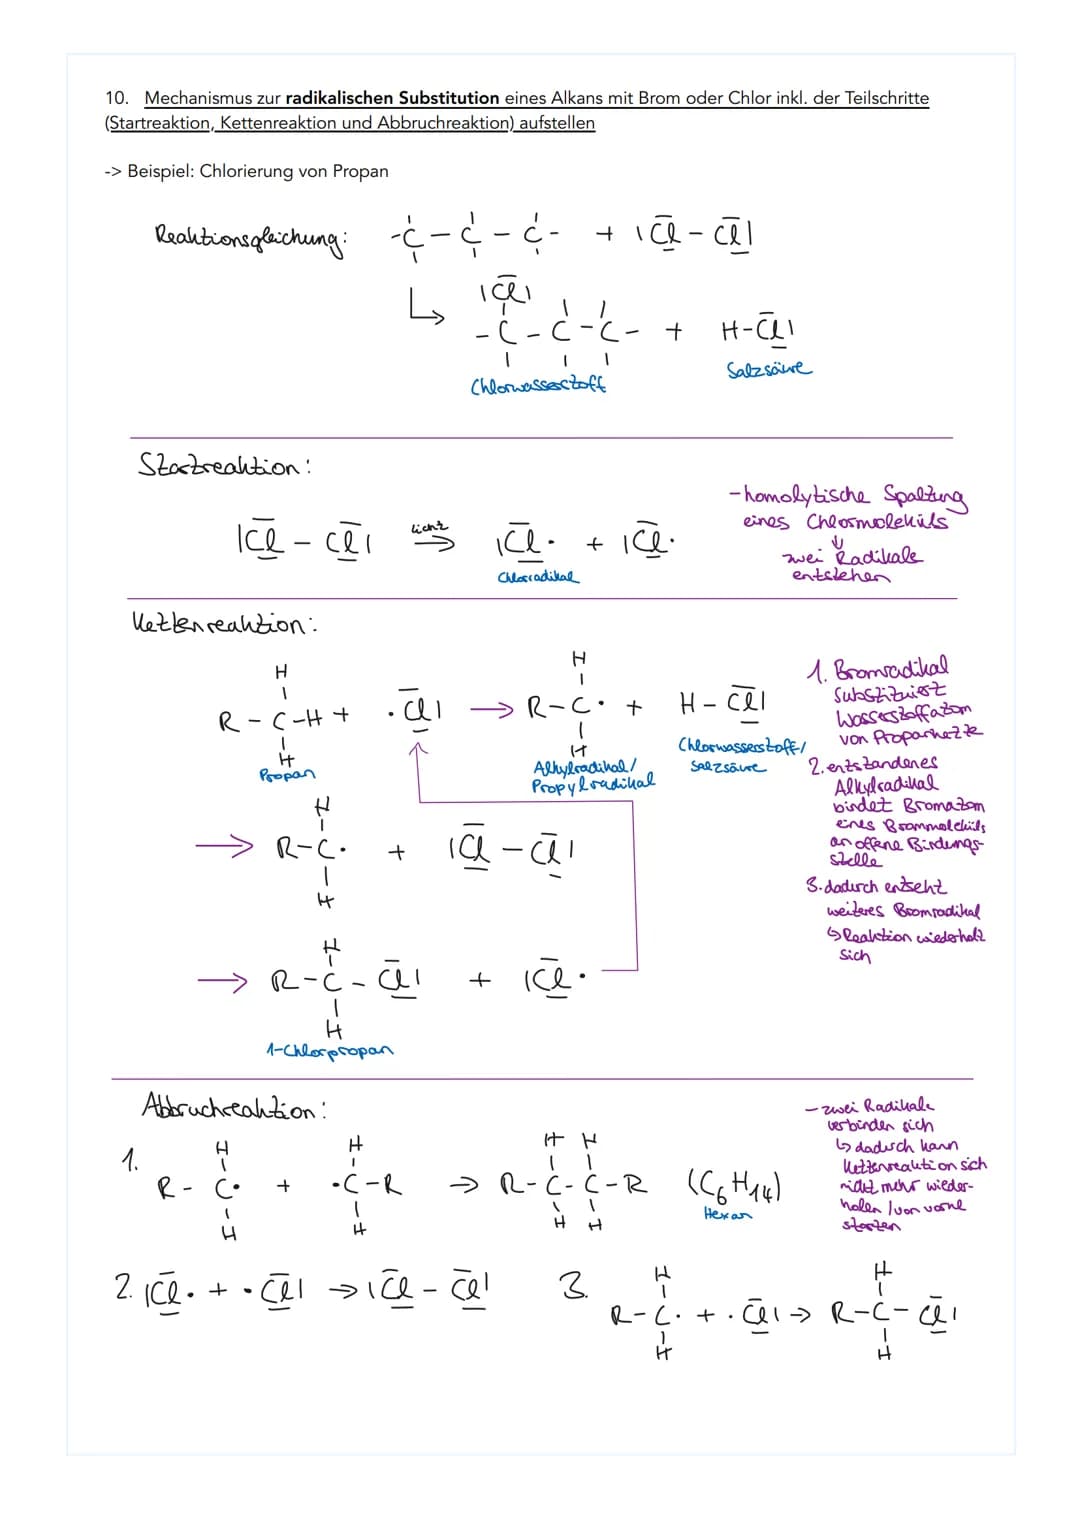 10. Mechanismus zur radikalischen Substitution eines Alkans mit Brom oder Chlor inkl. der Teilschritte
(Startreaktion, Kettenreaktion und Abbruchreaktion) aufstellen
-> Beispiel: Chlorierung von Propan
Reaktionsgleichung: -C-C-C- + |Cl-Cl|
↳ |Cl|
-C-C-C- + H-Cl|
Chlorwasserstoff
Salzsäure
Startreaktion:
|Cl-Cl| Licht ⇒ |Cl· + |Cl·
Chlorradikal
-homolytische Spaltung
eines Chlormoleküls
↓
zwei Radikale
entstehen
Kettenreaktion:
H H
R-C-H + ·Cl| → R-C· + H-Cl|
H H
Propan
Alkylradikal/
Propylradikal
Chlorwasserstoff/
Salzsäure
H
→ R-C· + |Cl-Cl|
H
H
→ R-C-Cl| + |Cl·
H
1-Chlorpropan
1. Bromradikal
substituiert
Wasserstoffatom
von Propankette
2. entstandenes
Alkylradikal
bindet Bromatom
eines Brommoleküls
an offene Bindungs-
stelle
3. dadurch entseht
weiteres Bromradikal
↳ Reaktion wiederholt
sich
Abbruchreaktion:
1.
H H H H
R-C· + ·C-R → R-C-C-R (C6H14)
H H H H
Hexan
- zwei Radikale
verbinden sich
↳ dadurch kann
Kettenreaktion sich
nicht mehr wieder-
holen / von vorne
starten
2. |Cl· + ·Cl| → |Cl-Cl|
3.
H H
R-C· + ·Cl| → R-C-Cl|
H H